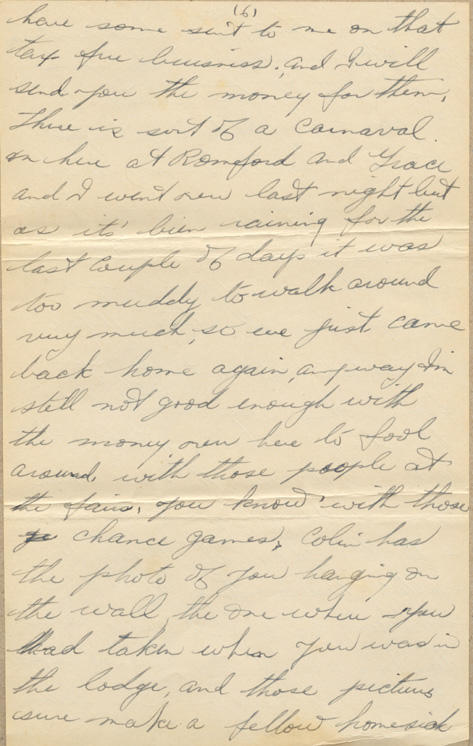 (6)
have some sent to me on that
tax free buisness, and I will
send you the money for them,
There is sort of a Carnaval
on here at Romford and Grace
and I went over last night but
as its' bien raining for the
last couple of days it was
too muddy to walk around
very much, so we just came
back home again, anyway Im
still not good enough with
the money over here to fool
around with those people at
the fairs, you know' with those
chance games, Colin has
the photo of you hanging on
the wall, the one where you
had taken when you was in
the lodge, and those pictures
sure make a fellow homesick